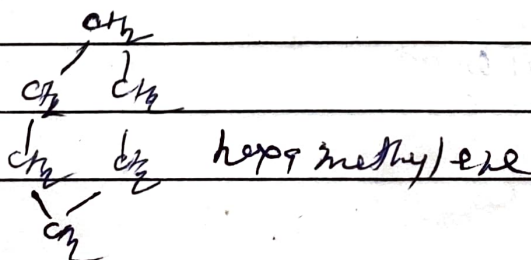 CH2
CH2 CH2
CH2 CH2 hexa methylene
CH2